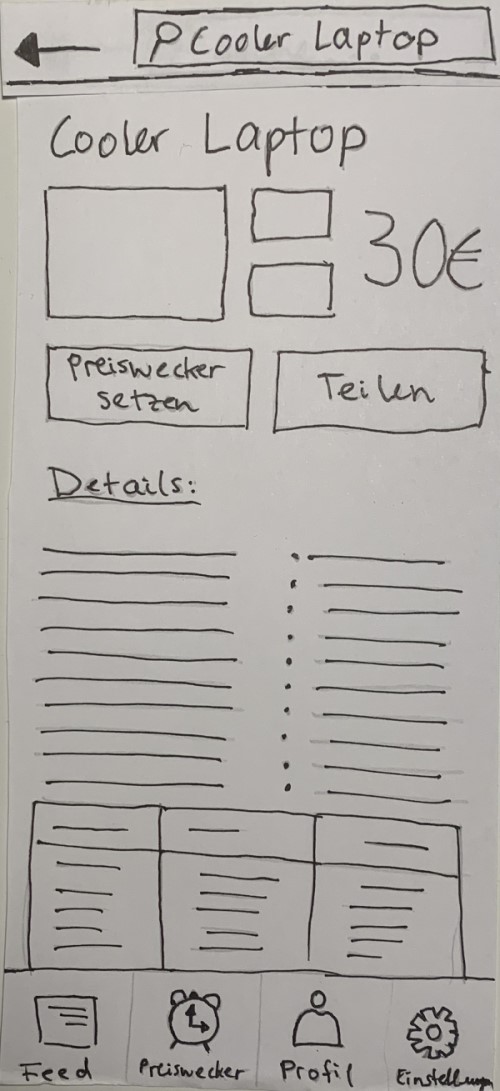 Cooler Laptop
Cooler Laptop
30€
Preiswecker
setzen
Teilen
Details:
Feed
Preiswecker
Profil
Einstellungen